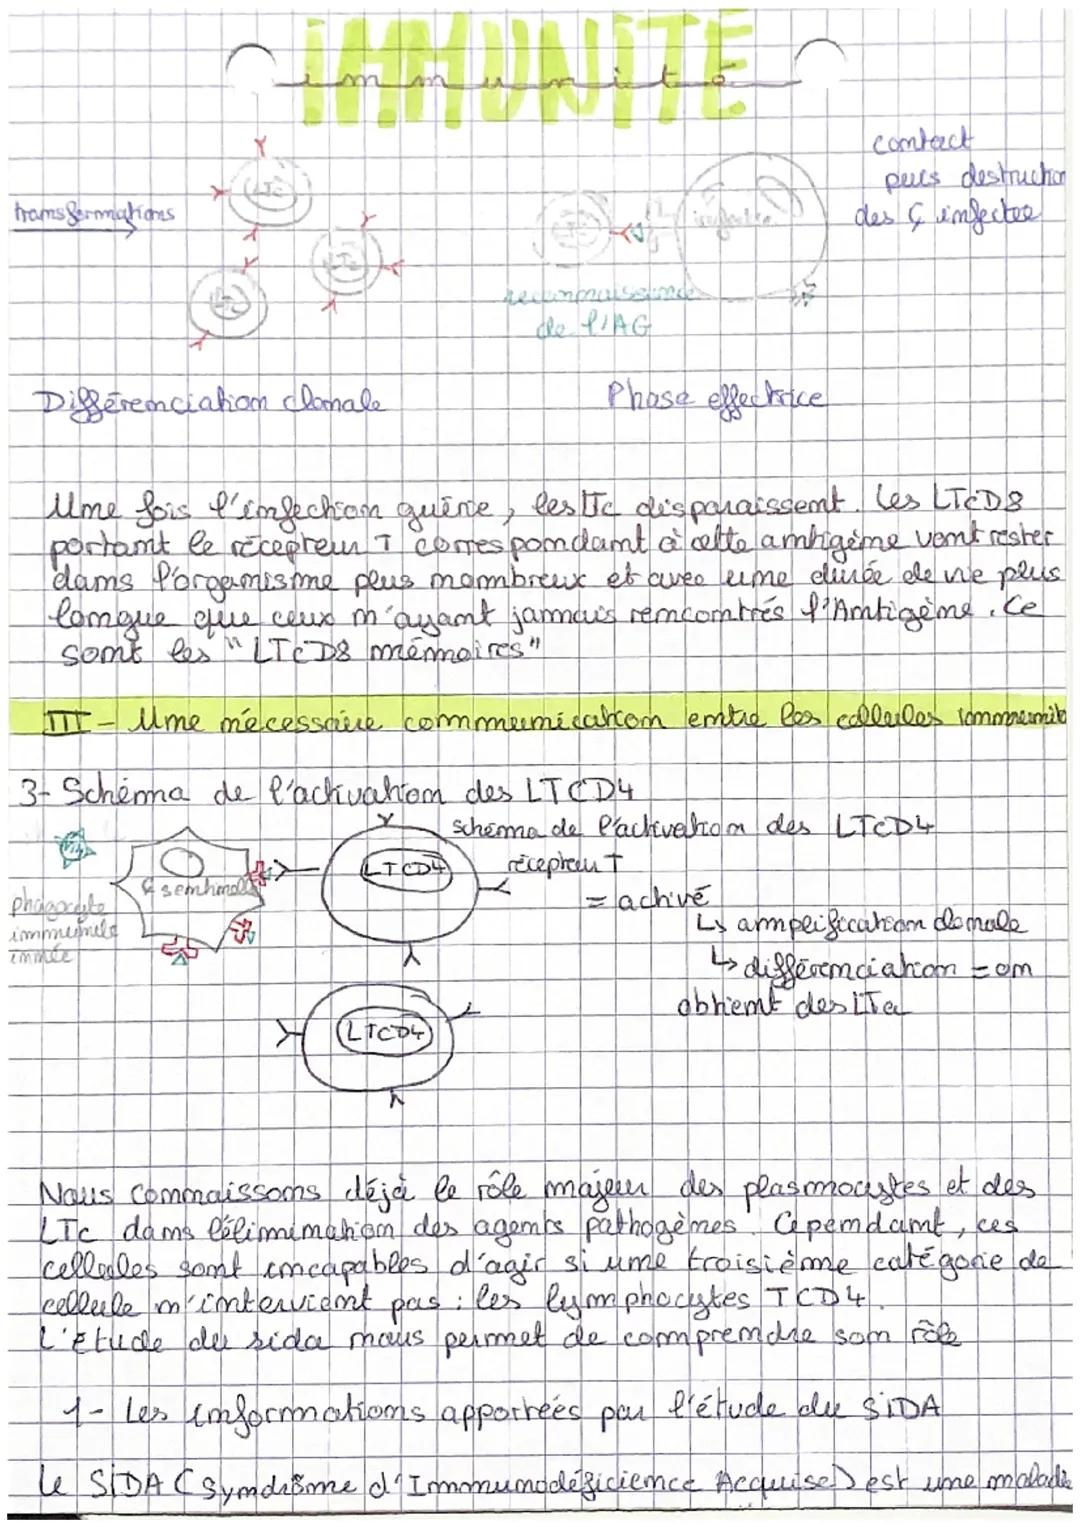 IMMUNITÉ
immunité
contact
puis destruction
des ₵ infectée
transformations
LTc
LTc
LTc
LTc
infectée
reconnaissance
de l'AG
Différenciation clonale
Phase effectrice
Une fois l'infection guérie, les LTc disparaissent. Les LTCD8
portant le récepteur T correspondant à cette antigène vont rester
dans l'organisme plus nombreux et avec une durée de vie plus
longue que ceux n'ayant jamais rencontrés l'Antigène. Ce
sont les "LTCD8 mémoires"
III - Une nécessaire communication entre les cellules immunit
3- Schéma de l'activation des LTCD4
schéma de l'activation des LTCD4
récepteur T
LTCD4
₵ sentinelle
= activé
phagocyte
immunité
innée
↳ amplification clonale
↳ différenciation = on
obtient des LTa
LTCD4
Nous connaissons déjà le rôle majeur des plasmocytes et des
LTc dans l'élimination des agents pathogènes. Cependant, ces
cellules sont incapables d'agir si une troisième catégorie de
cellule n'intervient pas : les lymphocytes TCD4.
L'étude du sida nous permet de comprendre son rôle
1- Les informations apportées par l'étude du SIDA
Le SIDA (Syndrôme d'Immunodéficience Acquise) est une maladie